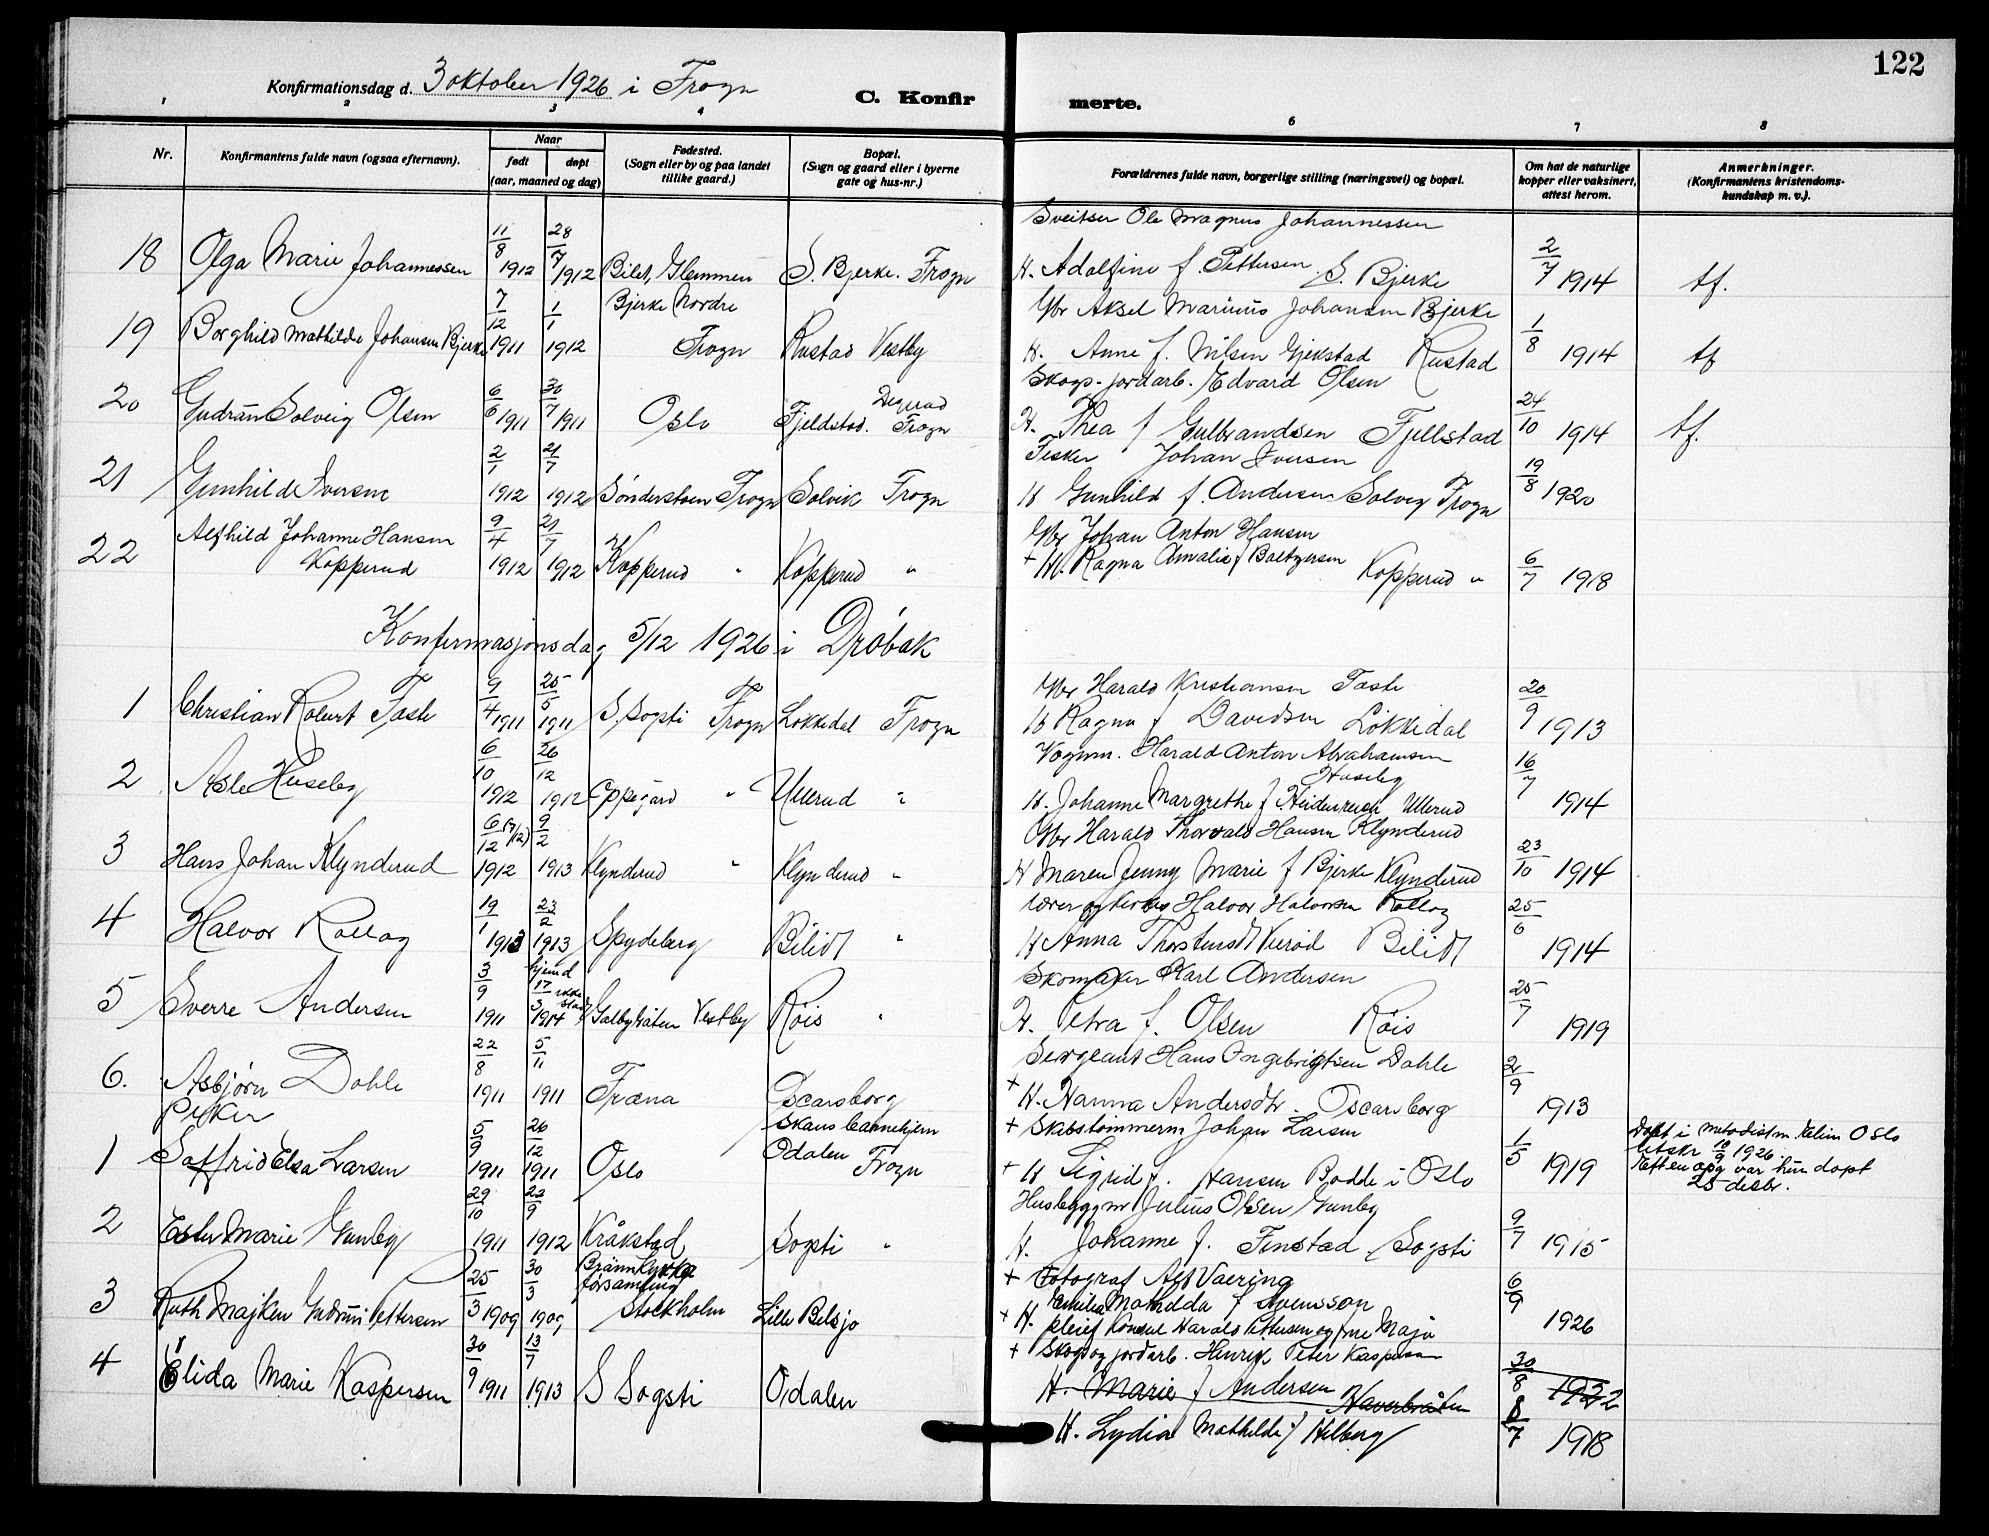 122
Konfirmationsdag d. 3 oktober 1926 i Frogn
C. Konfirmerte.
1 2 3 4 6 7 8
Nr. Konfirmantens fulde navn (ogsaa efternavn). Naar født døpt (aar, maaned og dag) Fødested. (Sogn eller by og paa landet tillike gaard.) Bopæl. (Sogn og gaard eller i byerne gate og hus-nr.) Forældrenes fulde navn, borgerlige stilling (næringsvei) og bopæl. Om hat de naturlige kopper eller vaksinert, attest herom. Anmerkninger. (Konfirmantens kristendoms-kundskap m. v.).
Sveitser Ole Magnus Johannessen
18 Olga Marie Johannessen 11/8 1912 28/7 1912 Bilet, Glemmen S. Bjerke. Frogn H. Adolfine f. Pettersen S. Bjerke 2/7 1914 tf.
Bjerke Nordre Gbr Aksel Marinius Johansen Bjerke
19 Borghild Mathilde Johansen Bjerke 7/12 1911 1/1 1912 Frogn Rustad Vestby H. Anne f. Nilsen Gjekstad Rustad 1/8 1914 tf
Skogs- jordarb. Edvard Olsen
20 Gudrun Solveig Olsen 6/6 1911 30/7 1911 Oslo Fjeldstad. Degrud Frogn H. Thea f Gulbrandsen Fjellstad 24/10 1914 tf.
Fisker Johan Iversen
21 Gunhild Iversen 2/1 1912 21/7 1912 Sønderstøen Frogn Solvik Frogn H Gunhild f. Andersen Solveg Frogn 19/8 1920
Alfhild Johanne Hansen Gbr Johan Anton Hansen
22 Kopperud 9/4 1912 21/7 1912 Kopperud " Kopperud " + H. Ragna Amalie f Baltzersen Kopperud " 6/7 1918
Konfirmasjonsdag 5/12 1926 i Drøbak
Gbr Harald Kristiansen Toste
1 Christian Robert Toste 9/4 1911 25/5 1911 S. Sogsti Frogn Løkkedal Frogn H Ragna f Davidsen Løkkedal 20/9 1913
Vognm. Harald Anton Abrahamsen
Huseby
2 Asle Huseby 6/10 1912 26/12 1912 Oppegård " Ullerud " H. Johanne Margrethe f Heidenreich Ullerud 16/7 1914
Gbr Harald Thorvald Hansen Klynderud
3 Hans Johan Klynderud 6/12 (7/12) 1912 9/2 1913 Klynderud " Klynderud " H Maren Jenny Marie f Bjerke Klynderud 23/10 1914
Lærer og kirkes Halvor Halvorsen Rollag
4 Halvor Rollag 19/1 1913 23/2 1913 Spydeberg Bilidt " H Anna Thorstensdt Vierød Bilidt 25/6 1914
Skomaker Karl Andersen
5 Sverre Andersen 3/9 1911 hjemd 17/3 ikke stadf 1914 Galbyråten Vestby Röis " H. Petra f. Olsen Röis 25/7 1919
Sergeant Hans Ongebrigtsen Dahle
6. Asbjørn Dahle 22/8 1911 5/11 1911 Fræna Oscarsborg + H. Hanna Andersdtr. Oscarsborg 2/9 1913
Piker Skaus barnehjem + Skibstømmerm Johan Larsen
1 Saffrid Elsa Larsen 5/9 1911 26/12 1911 Oslo Odalen Frogn + H Sigrid f. Hansen Bodde i Oslo 1/5 1919 Døpt i metodistm. Elim Oslo
utskr 10/9 1926.
Efter opg var hun døpt
25 desbr.
Husbyggm Julius Olsen Gunby
2 Ester Marie Gunby 29/10 1911 22/9 1912 Kråkstad Sogsti " H. Johanne f. Finstad Sogsti 9/7 1915
Brännkyrka församling + Fotograf Alf Vaering
3 Ruth Majken Gudrun Pettersen 25/3 1909 30/3 1909 Stockholm Lille Belsjø + H. Emilia Mathilda f Svensson 6/9 1926
pleief Konsul Harald Pettersen og frue Maja
+ Skogs og jordarb. Henrik Peter Kaspersen
4 Elida Marie Kaspersen 30/9 1911 13/7 1913 S Sogsti Odalen H. Marie f Andersen Haverbråten 30/8 1922
H. Lydia Mathilde f Helberg 8/7 1918